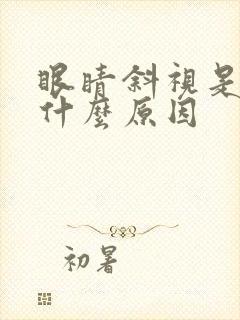 眼睛斜視是
什麼原因
初暑